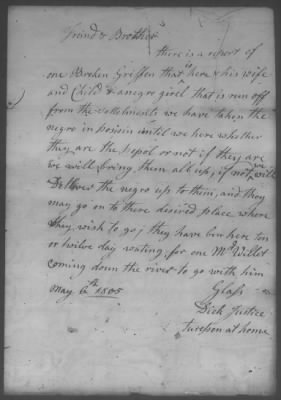 Friend & Brother
there is a report of
one Broken Greffen that is here & his wife
and Child & a negro girel that is run off
from the settelments we have taken the
negro in posisin until we here whether
they are the pepol or not if they are
we will bring them all up, if not will
Deliver the negro up to them, and they
may go on to there desired place where
they wish to go; they have ben here ten
or twelve day wating, for one Mr Willet
coming down the river to go with him
May 6th 1805
Glass
Dick Justice
at homa